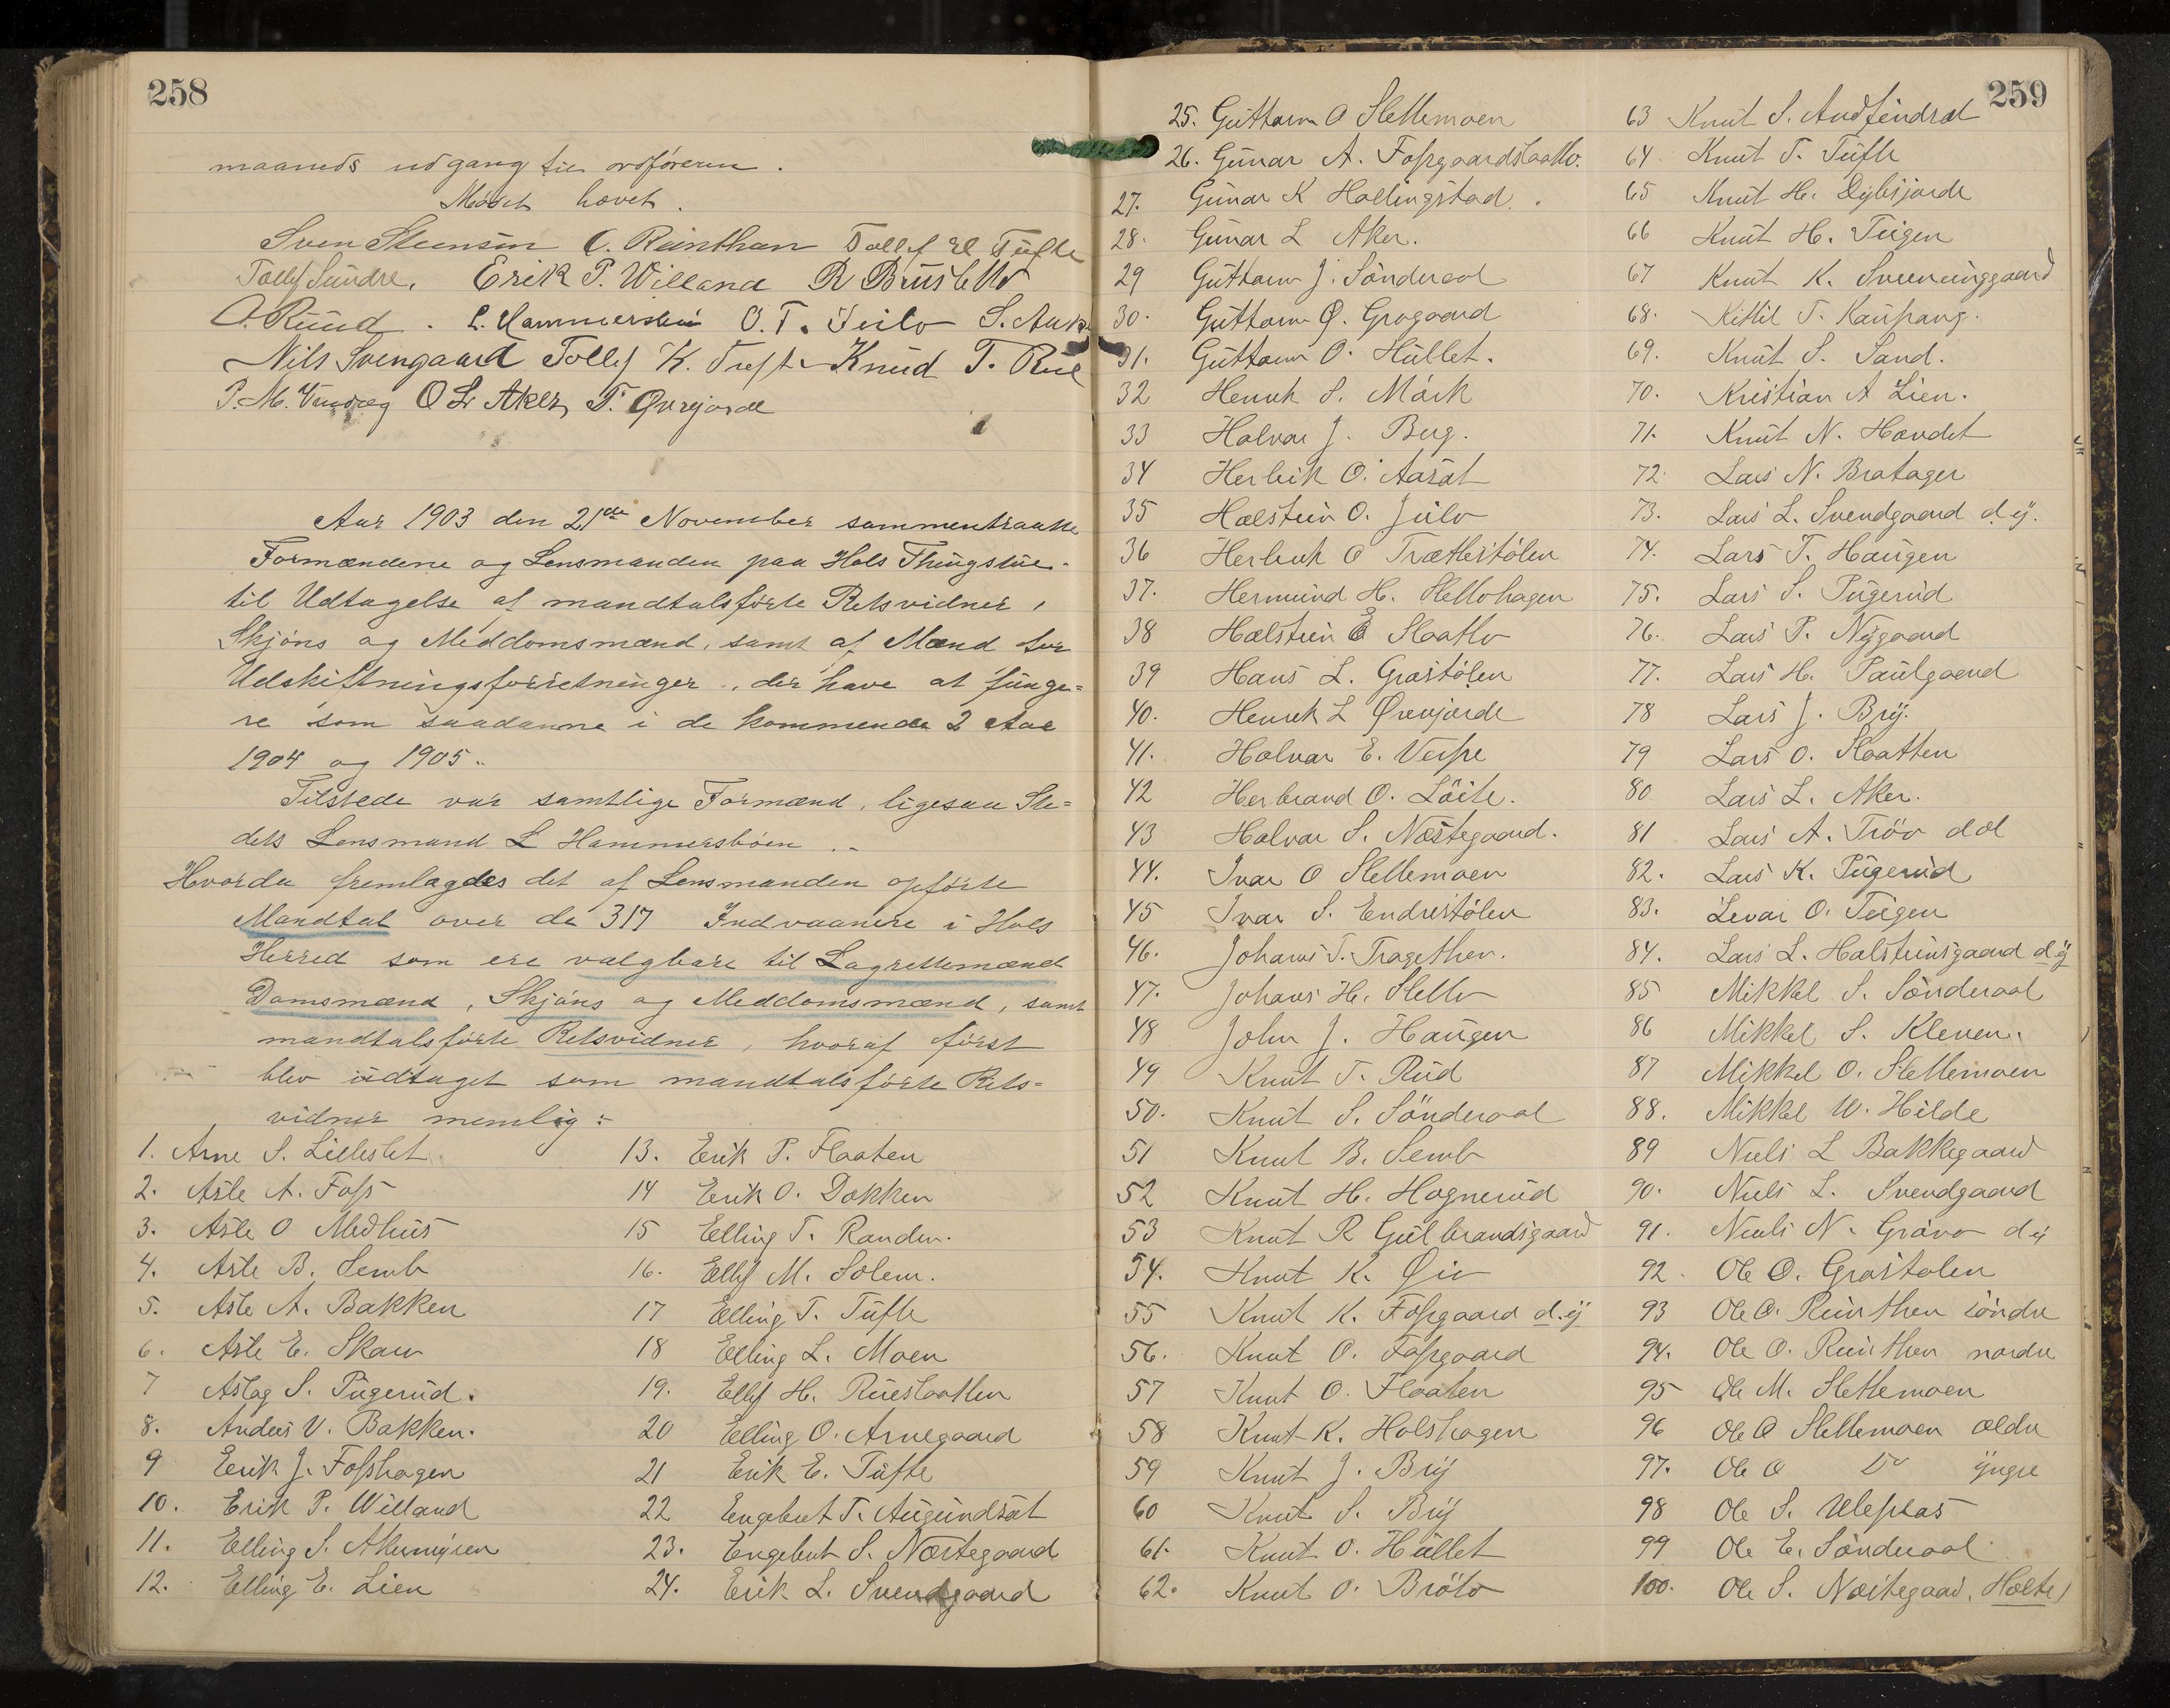 258
maaneds udgang til ordføreren.
Mödet hævet.
Sven Steensen O. Reinthan Tollef El Tufte
Tollef Sundre, Erik P. Willand R Brusletto
O. Ruud. L. Hammersbøen O. T. Juilo S. Auk
Nils Svengaard Tollef K. Tufte Knud T. Rue
P. M. O L Aker, T. Øvrejorde
Aar 1903 den 21de November sammentraatte
Formændene og Lensmanden paa Hols Thingstue
til Udtagelse af mandtalsførte Retsvidner,
Skjöns og Meddomsmænd, samt af Mænd for
Udskiftningsforretninger, der have at funge=
re som saadanne i de kommende 2 Aar
1904 og 1905.
Tilstede var samtlige Formænd, ligesaa Ste=
dets Lensmand L Hammersbøen.
Hvorda fremlagdes det af Lensmanden opførte
Mandtal over de 317 Indvaanere i Hols
Herred som ere valgbare til Lagrettemænd
Domsmænd, Skjöns og Meddomsmænd, samt
mandtalsførte Retsvidner, hvoraf først
blev udtaget som mandtalsførte Rets=
vidner nemlig:
1. Arne S. Lilleslet
2. Asle A. Foss
3. Asle O Medhus
4. Asle B. Semb
5. Asle A. Bakken
6. Asle E. Skaro
7 Aslag S. Pugerud.
8. Anders V. Bakken.
9 Erik J. Fosshagen
10. Erik P. Willand
11. Elling S. Akermyren
12. Elling E. Lien
13. Erik P. Flaaten
14 Erik O. Dokken
15 Elling T. Randen.
16. Ellef M. Solem.
17 Elling T. Tufte
18 Elling L. Moen
19. Ellef H. Rueslaatten
20 Elling O. Arnegaard
21 Erik E. Tufte
22 Engebret T. Augundsæt
23. Engebret S. Nestegaard
24. Erik L. Svendgaard
259
25. Guttorm O Slettemoen
26. Gunar A. Fossgaardslaatto.
27. Gunar K Hallingstad.
28. Gunar L Aker.
29 Guttorm J. Sönderaal
30. Guttorm Ø. Grøgaard
31. Guttorm O. Hullet.
32 Henrik S. Mörk
33 Halvar J. Berg.
34 Herleik O. Aasæt
35 Hælstein O. Juilo
36 Herleik O Trætteistölen
37. Hermund H. Slettohagen
38 Hælstein E Slaatto
39 Hans L. Grøstölen
40. Henrek L Øvrejorde
41. Halvar E. Vespe
42 Herbrand O. Löite.
43 Halvar S. Nestegaard.
44. Ivar O Slettemoen
45 Ivar S. Endrestölen
46. Johans T. Tragethon.
47. Johans H. Sletto
48 John J. Haugen
49 Knut T. Rud
50. Knut S. Sönderaal
51 Knut B. Semb
52 Knut H. Hagnerud
53 Knut R Gulbrandsgaard
54. Knut K. Øio
55 Knut K. Fossgaard d.y
56. Knut O. Fossgaard
57 Knut O. Flaaten
58 Knut K. Holshagen
59 Knut J. Bry
60 Knut S. Bry
61. Knut O. Hullet
62. Knut O. Bröto
63 Knut S. Audfindsæt
64 Knut T. Tufte
65 Knut H. Dybsjorde
66 Knut H. Teigen
67 Knut K. Sveinunggaard
68. Kittil T. Kaupang.
69. Knut S. Sand.
70. Kristian A Lien.
71. Knut N. Hovdet
72. Lars N. Brataker
73. Lars L. Svendgaard d.y.
74. Lars T. Haugen
75. Lars S. Pugerud
76. Lars P. Nygaard
77. Lars H. Paulgaard
78 Lars J. Bry.
79 Lars O. Slaatten
80 Lars L. Aker.
81 Lars A. Tröo
82. Lars K. Pugerud
83. Levar O. Teigen
84. Lars L. Halsteinsgaard d y
85 Mikkel S. Sönderaal
86 Mikkel S. Kleven.
87 Mikkel O. Slettemoen
88. Mikkel W. Hilde
89 Niels L Bakkegaard
90. Niels L. Svendgaard
91. Niels N. Gröno d y
92. Ole O. Grøstølen
93 Ole O. Reinthon söndre
94. Ole O. Reinthon nordre
95 Ole M. Slettemoen
96 Ole O Slettemoen ældre
97. Ole O Do yngre
98 Ole S. Ulepsas
99 Ole E. Sönderaal
100. Ole S. Nestegaard, Holte)